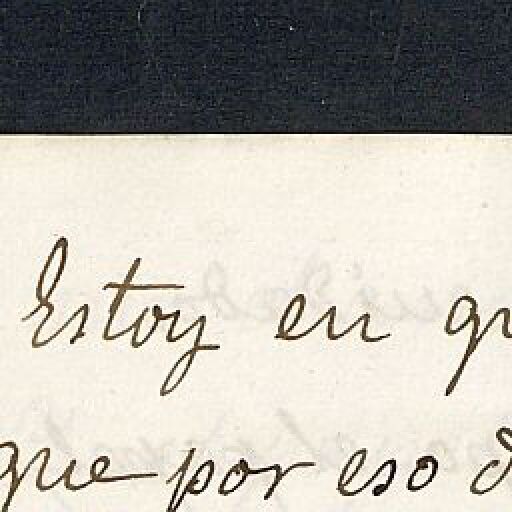 Estoy en
que por eso